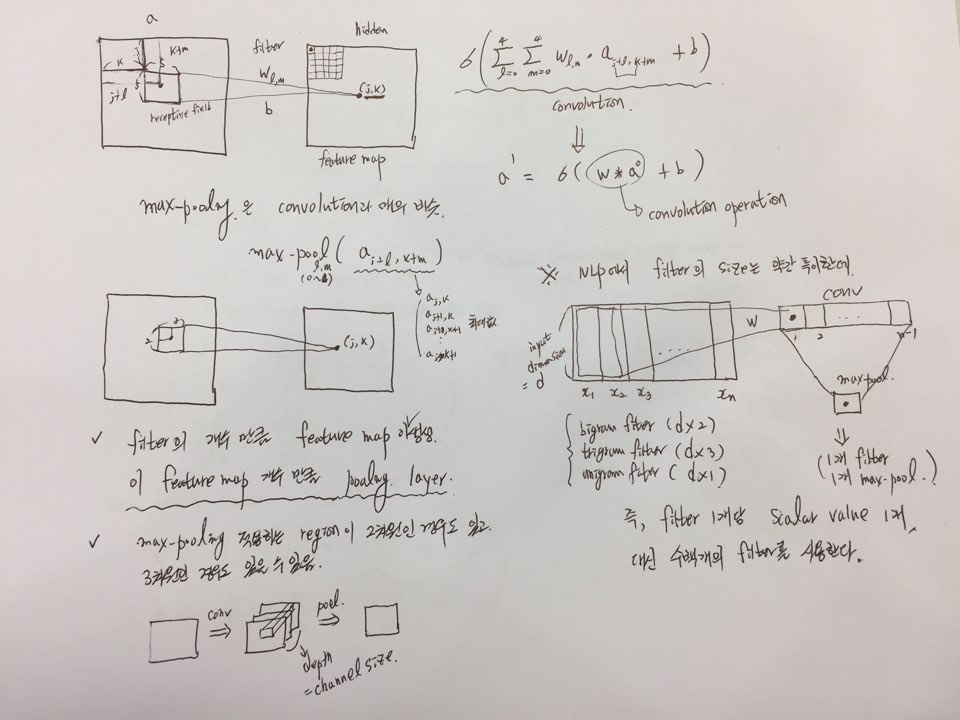 a
k
k+m
5
j+l
5
receptive field
filter
w l,m
b
hidden
(j,k)
feature map
σ( Σ l=0 4 Σ m=0 4 w l,m · a j+l, k+m + b )
convolution.
⇓
a¹ = σ( w * a⁰ + b )
→ convolution operation
max-pooling 은 convolution과 매우 비슷.
max-pool l,m ( a j+l, k+m )
(0~1)
a j,k
a j+1,k
a j+0,k+1
최대값
⋮
2
2
(j,k)
✓ filter의 개수 만큼 feature map 이 생성.
이 feature map 개수 만큼 pooling layer.
✓ max-pooling 적용하는 region이 2차원인 경우도 있고
3차원인 경우도 있을 수 있음.
conv
⇒
pool.
⇒
depth
= channel size.
※ NLP에서 filter의 size는 약간 특이한데.
input
dimension
= d
x1 x2 x3 xn
.....
w
conv
1 2 n-1
max-pool.
⇓
(1개 filter
1개 max-pool.)
bigram filter (d×2)
trigram filter (d×3)
unigram filter (d×1)
즉, filter 1개당 scalar value 1개,
대신 수백개의 filter를 사용한다.